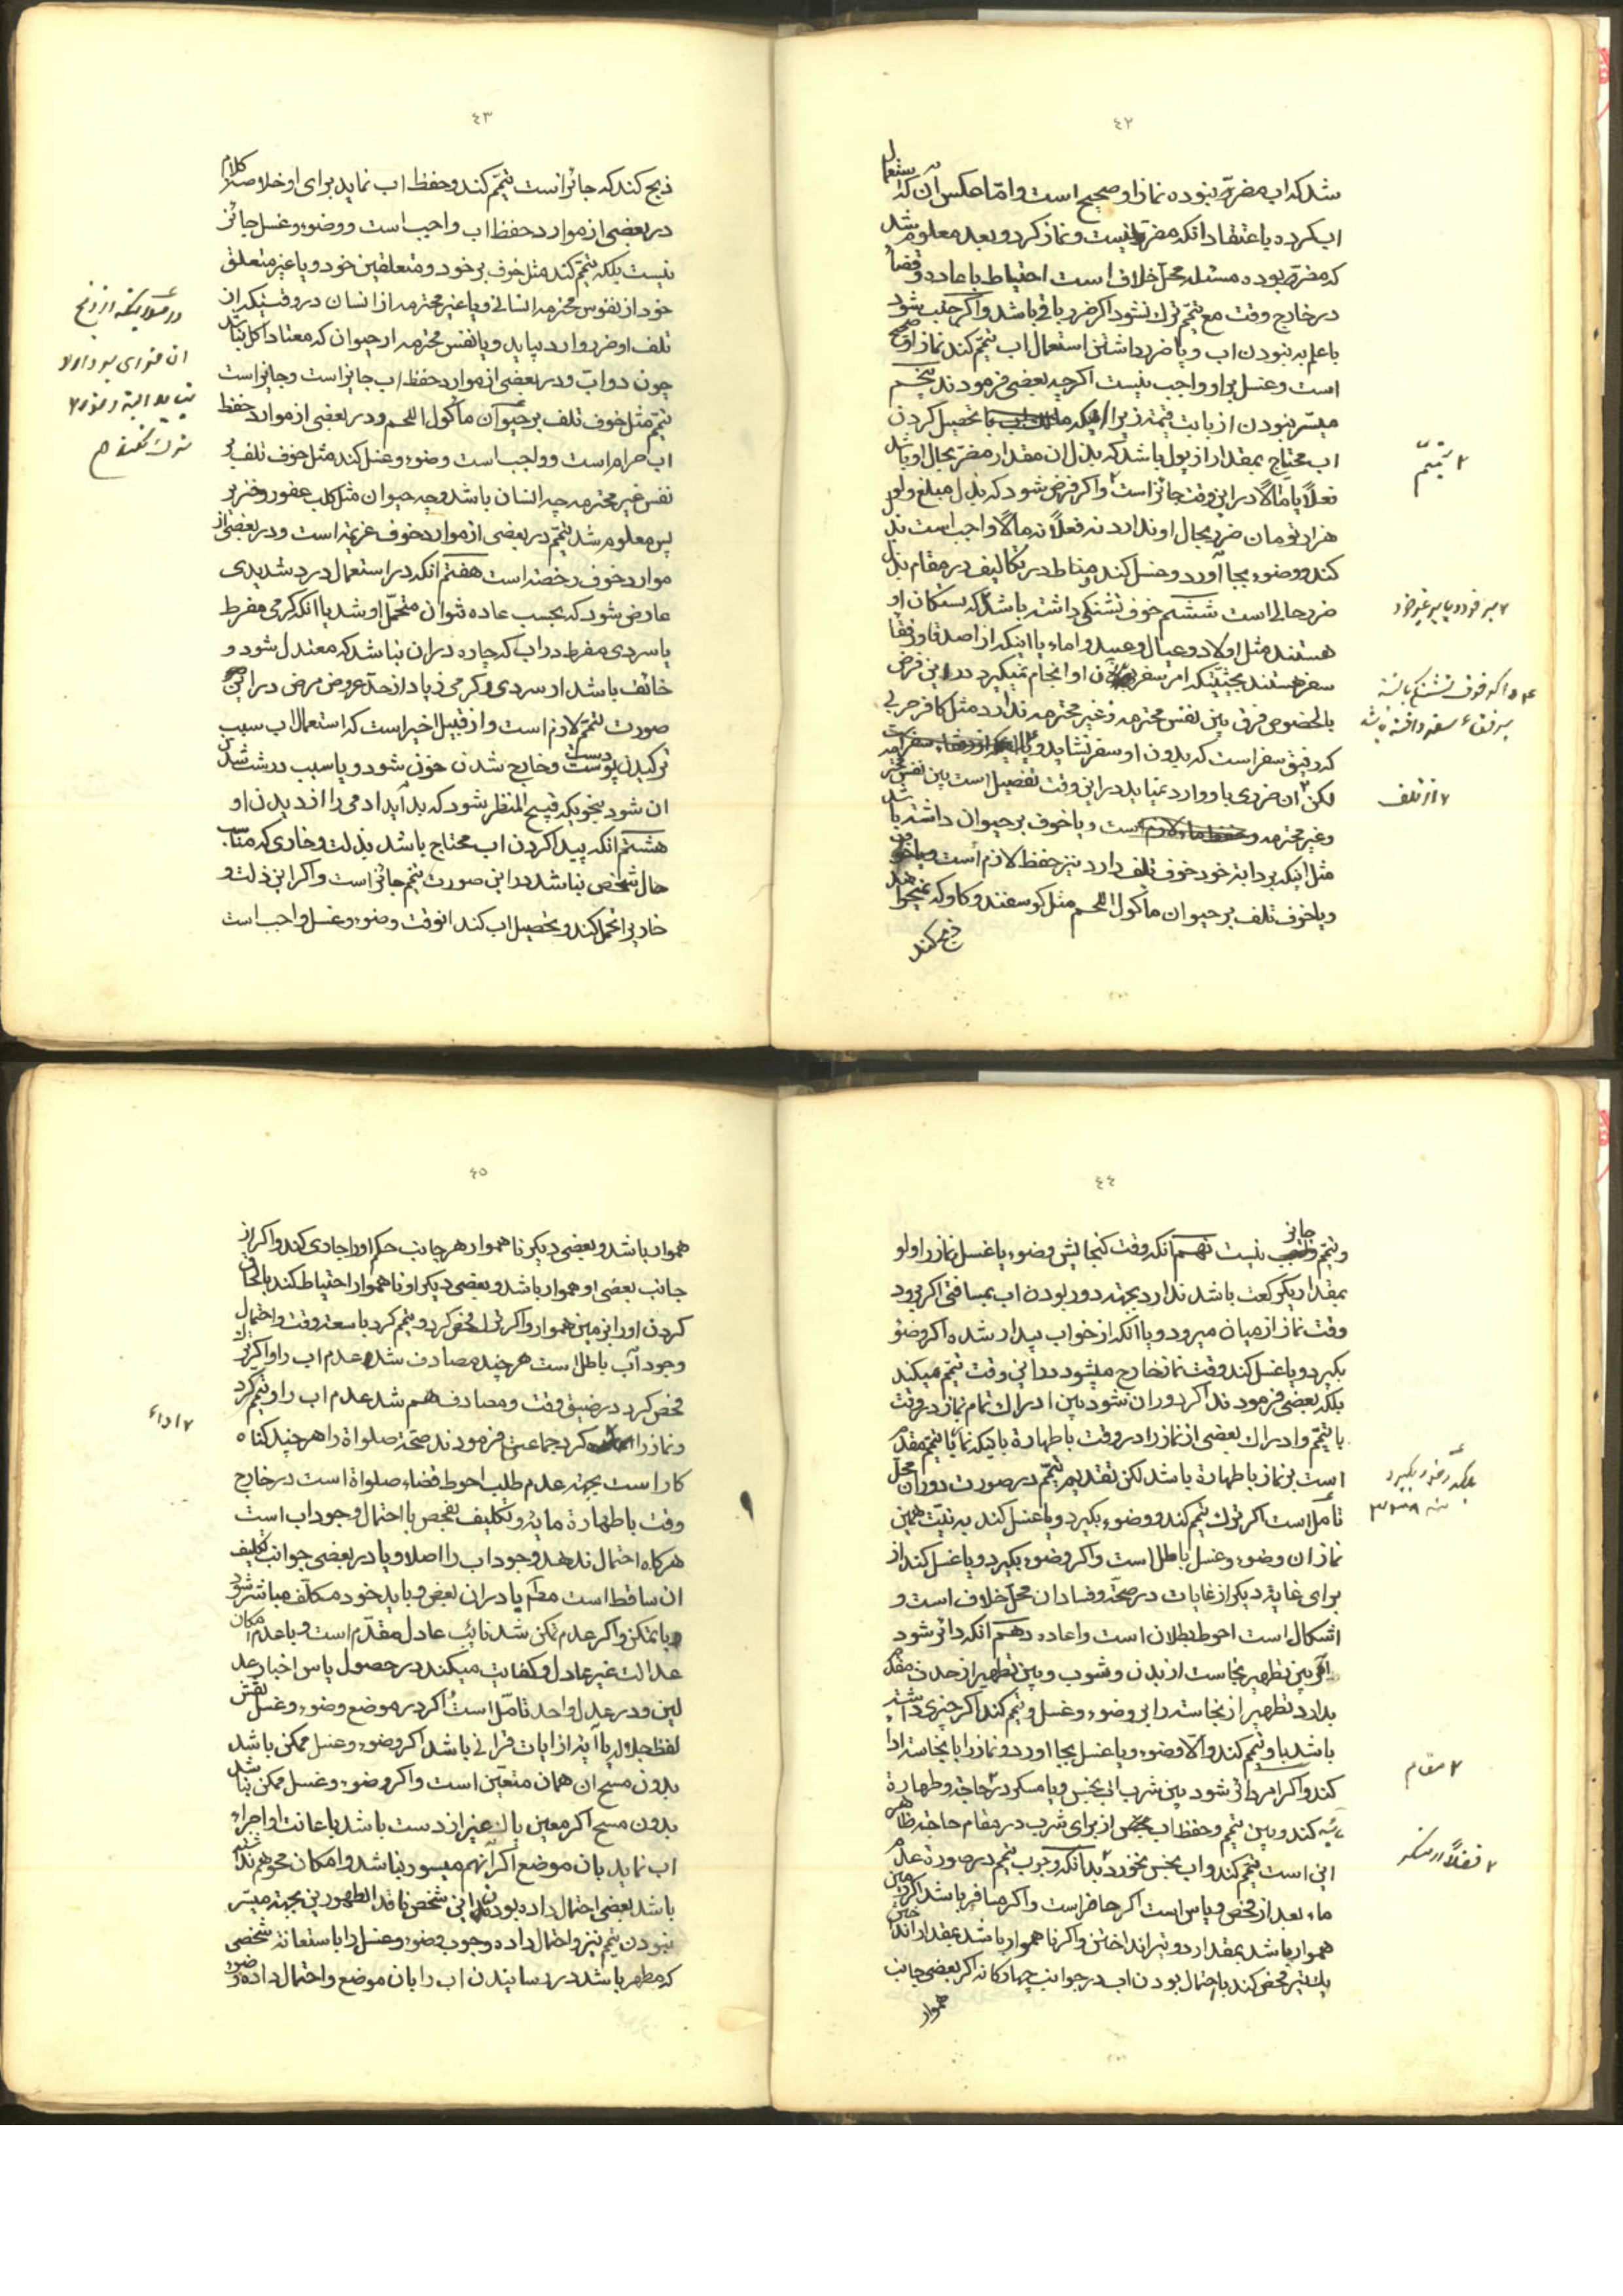 ٤٢
شد که اب مضرّ نبوده نماز او صحیح است و امّا عکس ان که استعمال
اب کرده باعتقاد انکه مضرّ نیست و نماز کرد و بعد معلوم شد
که مضرّ بوده مسئله محل خلاف است احتیاط باعاده و قضاء
در خارج وقت مع تیمّم ترک نشود اکر ضرر باقی باشد و اکر جنب شود
با علم به نبودن اب و یا ضرر داشتن استعمال اب تیمّم کند نماز او صحیح
است و غسل بر او واجب نیست اکرچه بعضی فرمودند پنجم
میسّر نبودن از بابت قیمة زیرا که با تحصیل کردن
اب محتاج بمقدار از پول باشد که بذل ان مقدار مضرّ بحال او باشد
فعلاً یا مٰالاً در این وقت جائز است و اکر فرض شود که بذل مبلغ ولو
هزار تومان ضرر بحال او ندارد نه فعلاً نه مالاً واجب است بذل
کند و وضوء بجا آورد و غسل کند و مناط در تکالیف در مقام بذل
ضرر حالی است ششم خوف تشنکی داشته باشد که بستکان او
هستند مثل اولاد و عیال و عبید و اماء یا اینکه از اصدقا و رفقا
سفر هستند بحیثیّتیکه امر سفر بدون او انجام نمیکیرد در این فرض
بالخصوص فرق بین نفس محترمه و غیر محترمه ندارد مثل کافر حربی
که رفیق سفر است که بدون او سفر نشاید و یا
لکن ان ضرری باو وارد نمیاید در این وقت تفصیل است بین نفس محترمه
و غیر محترمه است و یا خوف بر حیوان داشته باشد
مثل اینکه بر دابّه خود خوف تلف دارد نیز حفظ لازم است
و یا خوف تلف بر حیوان ماکول اللحم مثل کوسفند و کاو که نمیخواهد
ذبح کند
٢ تیمّم
٢ بر خود و یا بر غیر خود
٢ از تلف
٤٣
ذبح کند که جائز است تیمّم کند و حفظ اب نماید برای او خلاصه کلام
در بعضی از موارد حفظ اب واجب است و وضوء و غسل جائز
نیست بلکه تیمّم کند مثل خوف بر خود و متعلقین خود و یا غیر متعلق
خود از نفوس محترمه انسانی و یا غیر محترمه از انسان در وقتیکه از
تلف او ضرر وارد بیاید و یا نفس محترمه از حیوان که معتاد اکل نباشد
چون دوابّ و در بعضی از موارد حفظ اب جایز است و جایز است
تیمّم مثل خوف تلف بر حیوان ماکول اللحم و در بعضی از موارد حفظ
اب حرام است و واجب است وضوء و غسل کند مثل خوف تلف بر
نفس غیر محترمه چه انسان باشد و چه حیوان مثل کلب عقور و خنزیر
پس معلوم شد تیمّم در بعضی از موارد خوف عزیمة است و در بعضی از
موارد خوف رخصة است هفتم انکه در استعمال درد شدیدی
عارض شود که بحسب عاده نتوان متحمّل او شد یا انکه کرمی مفرط
یا سردی مفرط در اب که چاره در ان نباشد که معتدل شود و
خائف باشد از سردی و کرمی زیاد از حدّ عروض مرض در این
صورت تیمّم لازم است و از قبیل اخیر است که استعمال اب سبب
ترکیدن پوست دست و خارج شدن خون شود و یا سبب درشت شدن
ان شود بنحویکه قبیح المنظر شود که بد آید ادمی را از دیدن او
هشتم انکه پیدا کردن اب محتاج باشد بذلت و خاری که مناسب
حال شخص نباشد در این صورت تیمّم جائز است و اکر این ذلت و
خاری را تحمل کند و تحصیل اب کند انوقت وضوء و غسل واجب است
٤٤
و تیمّم جائز نیست نهم انکه وقت کنجایش وضوء یا غسل نماز را ولو
بمقدار یک رکعت باشد ندارد بجهة دور بودن اب بمسافتی اکر برود
وقت نماز از میان میرود و یا انکه از خواب بیدار شده اکر وضوء
بکیرد و یا غسل کند وقت نماز خارج میشود در این وقت تیمّم میکند
بلکه بعضی فرمودند اکر دوران شود بین ادراک تمام نماز در وقت
با تیمّم و ادراک بعضی از نماز را در وقت با طهارة با اینکه نماز با تیمّم مقدم
است بر نماز با طهارة باشد لکن تقدیم تیمّم در صورت دوران محلّ
تأمّل است اکر ترک تیمّم کند و وضوء بکیرد و یا غسل کند به نیّت همین
نماز ان وضوء و غسل باطل است و اکر وضوء بکیرد و یا غسل کند از
برای غایة دیکر از غایات در صحّة و فساد ان محلّ خلاف است و
اشکال است احوط بطلان است و اعاده دهم انکه دائر شود
امر بین تطهیر نجاست از بدن و ثوب و بین تطهیر از حدث مقدم
بدارد تطهیر از نجاسة را بر وضوء و غسل و تیمّم کند اکر چیزی داشته
باشد باو تیمّم کند و الّا وضوء و یا غسل بجا اورد و نماز را با نجاسة ادا
کند و اکر امر دائر شود بین شرب اب نجس و یا مسکر در حاجة و طهارة
کند و بین تیمّم و حفظ اب از برای شرب در مقام حاجة ظاهر
این است تیمّم کند و اب نجس نخورد بدانکه وجوب تیمّم در صورة عدم
ماء بعد از فحص و یاس است اکر حاضر است و اکر مسافر باشد اکر زمین
هموار باشد بمقدار دو تیر انداختن و اکر نا هموار باشد بمقدار انداختن
یک تیر فحص کند با احتمال بودن اب در جوانب چهارکانه اکر بعضی جانب
هموار
٢ مقام
٢ فضلاً از مسکر
٤٥
هموار باشد و بعضی دیکر نا هموار هر جانب حکم او را جاری کند و اکر از
جانب بعضی او هموار باشد و بعضی دیکر او نا هموار احتیاط کند بالحاق
کردن او را بزمین هموار و اکر ترک فحص کرد و تیمّم کرد با سعة وقت و احتمال
وجود آب باطل است هرچند مصادف شد عدم اب را و اکر ترک
فحص کرد در ضیق وقت و مصادف هم شد عدم اب را و تیمّم کرد
و نماز را کرد جماعتی فرمودند صحّة صلواة را هرچند کناه
کار است بجهة عدم طلب احوط قضاء صلواة است در خارج
وقت با طهارة مائیّه و تکلیف بفحص با احتمال وجود اب است
هرکاه احتمال ندهد وجود اب را اصلا و یا در بعضی جوانب تکلیف
ان ساقط است مطلقا یا در ان بعض و باید خود مکلّف مباشر شود
با تمکن و اکر عدم تمکن شد نائب عادل مقدّم است و با عدم امکان
عدالت غیر عادل و کفایت میکند در حصول یاس اخبار عد
لین و در عدل واحد تامّل است اکر در موضع وضوء و غسل نقش
لفظ جلاله یا آیة از ایات قرانی باشد اکر وضوء و غسل ممکن باشد
بدون مسح ان همان متعیّن است و اکر وضوء و غسل ممکن نباشد
بدون مسح اکر معین پاک غیر از دست باشد باعانت او اجراء
اب نماید بان موضع اکر انهم میسور نباشد و امکان محو هم نداشته
باشد بعضی احتمال داده بودند این شخص فاقد الطهورین بجهة میسّر
نبودن تیمّم نیز و احتمال داده وجوب وضوء و غسل را باستعانة شخصی
که مطهر باشد در رسانیدن اب را بان موضع و احتمال داده وضوء
٢ اداء